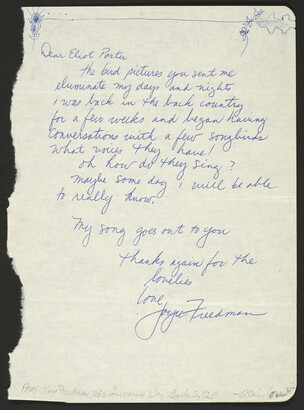 Dear Eliot Porter
The bird pictures you sent me
eluminate my days and nights
I was back in the back country
for a few weeks and began having
conversations with a few songbirds
What voices they have!
oh how do they sing?
maybe some day I will be able
to really know.
My song goes out to you
Thanks again for the
lovelies
love,
Joyce Freedman